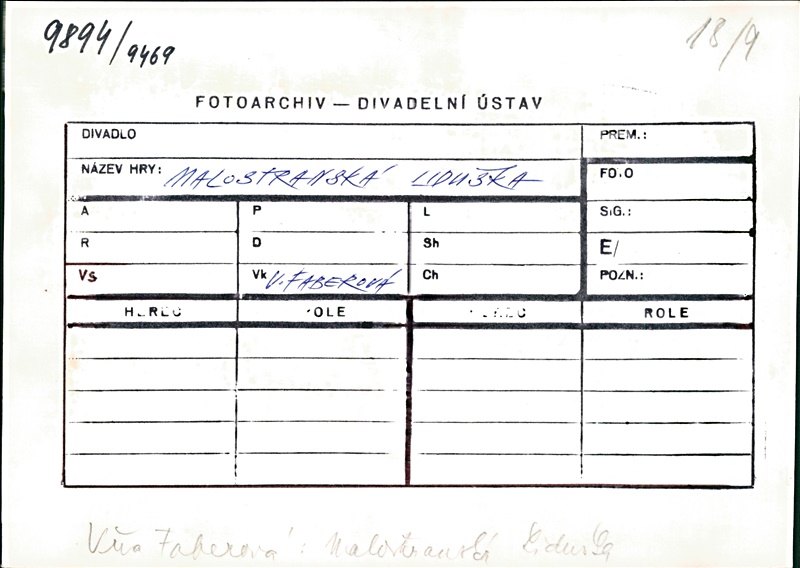 9894/9469
13/9
FOTOARCHIV — DIVADELNÍ ÚSTAV
DIVADLO PREM.:
NÁZEV HRY: MALOSTRANSKÁ LIDUŠKA FOTO
A P L SIG.:
R D Sh E/
Vs Vk V. FABEROVÁ Ch POZN.:
HEREC ROLE HEREC ROLE
Faberová: Malostranská Liduška